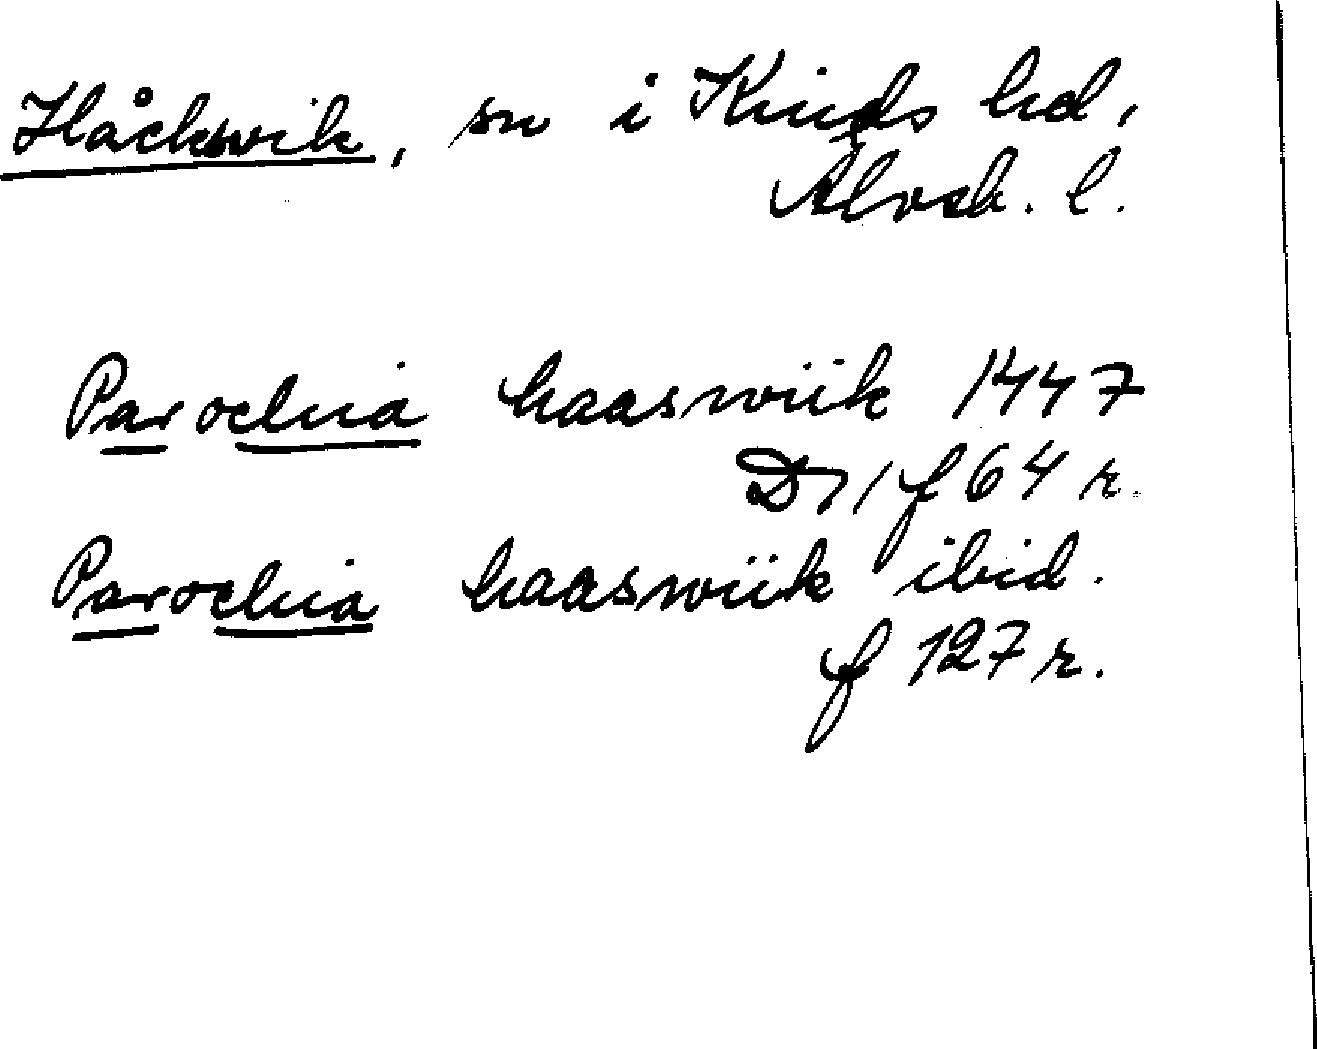 Håcksvik, sn i Kinds hd,
Älvsb. l.
Parochia haaswiik 1447
D 7 1 f 64 r.
Parochia haaswiik ibid.
f 127 r.